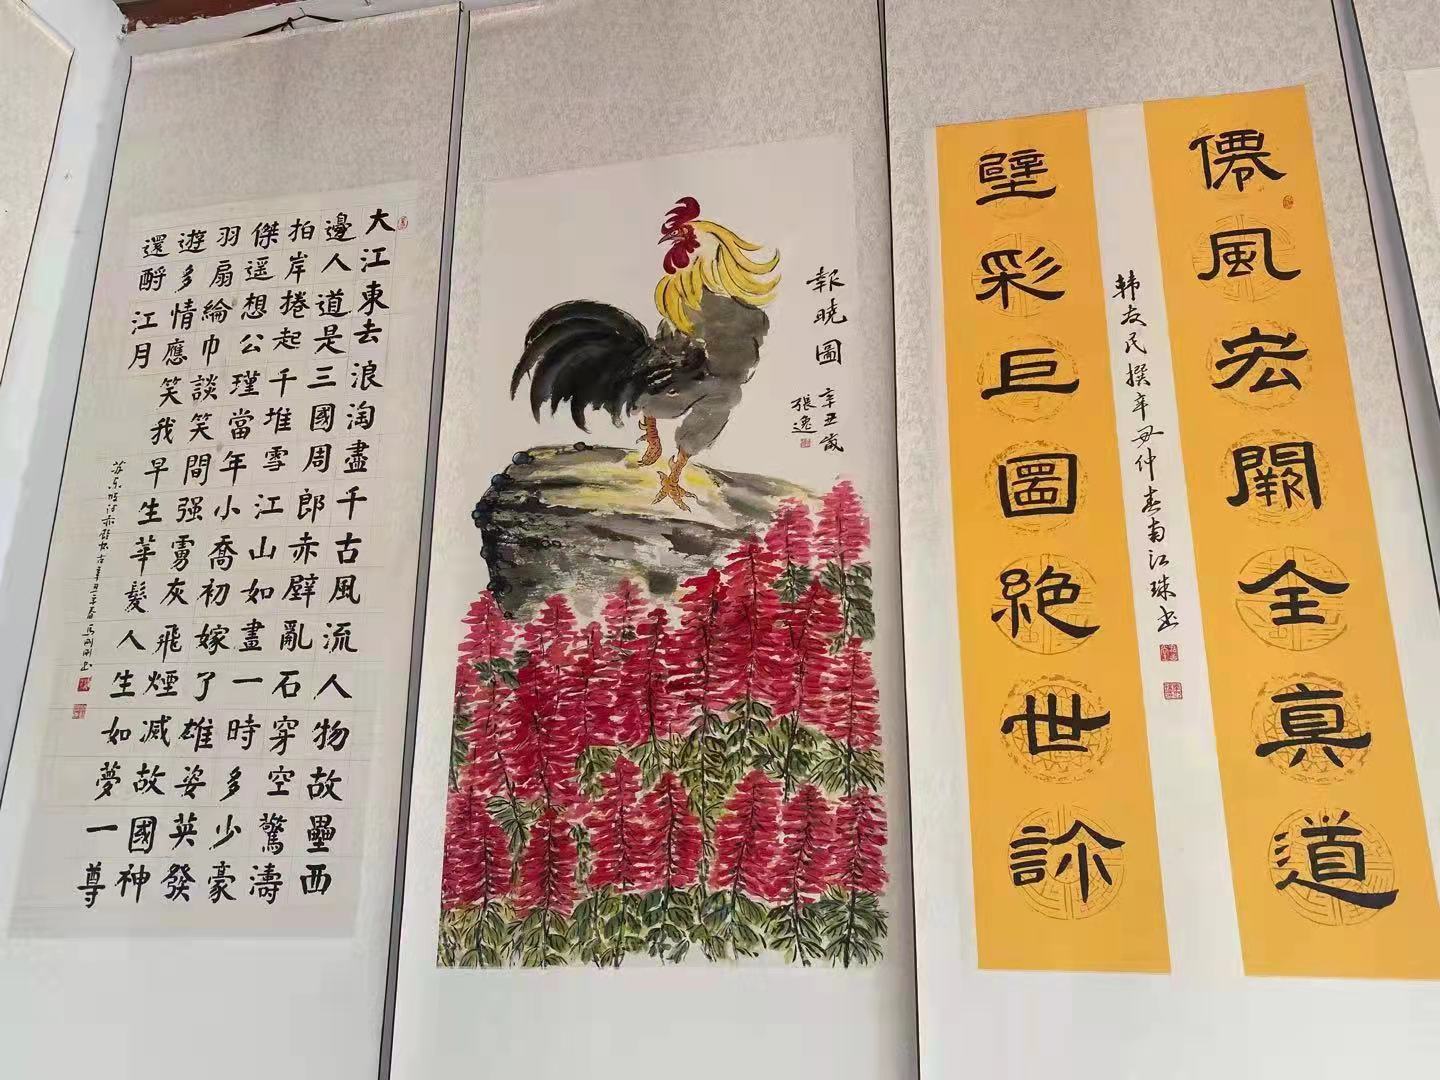 大江東去浪淘盡千古風流人物故壘西
邊人道是三國周郎赤壁亂石穿空驚濤
拍岸捲起千堆雪江山如畫一時多少豪
傑遥想公瑾當年小喬初嫁了雄姿英發
羽扇綸巾談笑間强虜灰飛煙減故國神
遊多情應笑我早生華髮人生如夢一尊
還酹江月
蘇東坡詞赤壁懷古辛丑年春馬剛剛书
報曉圖
辛丑歲
張逸
僊風宏闕全真道
韩友民撰辛丑仲春南江珠书
壁彩巨圖絶世